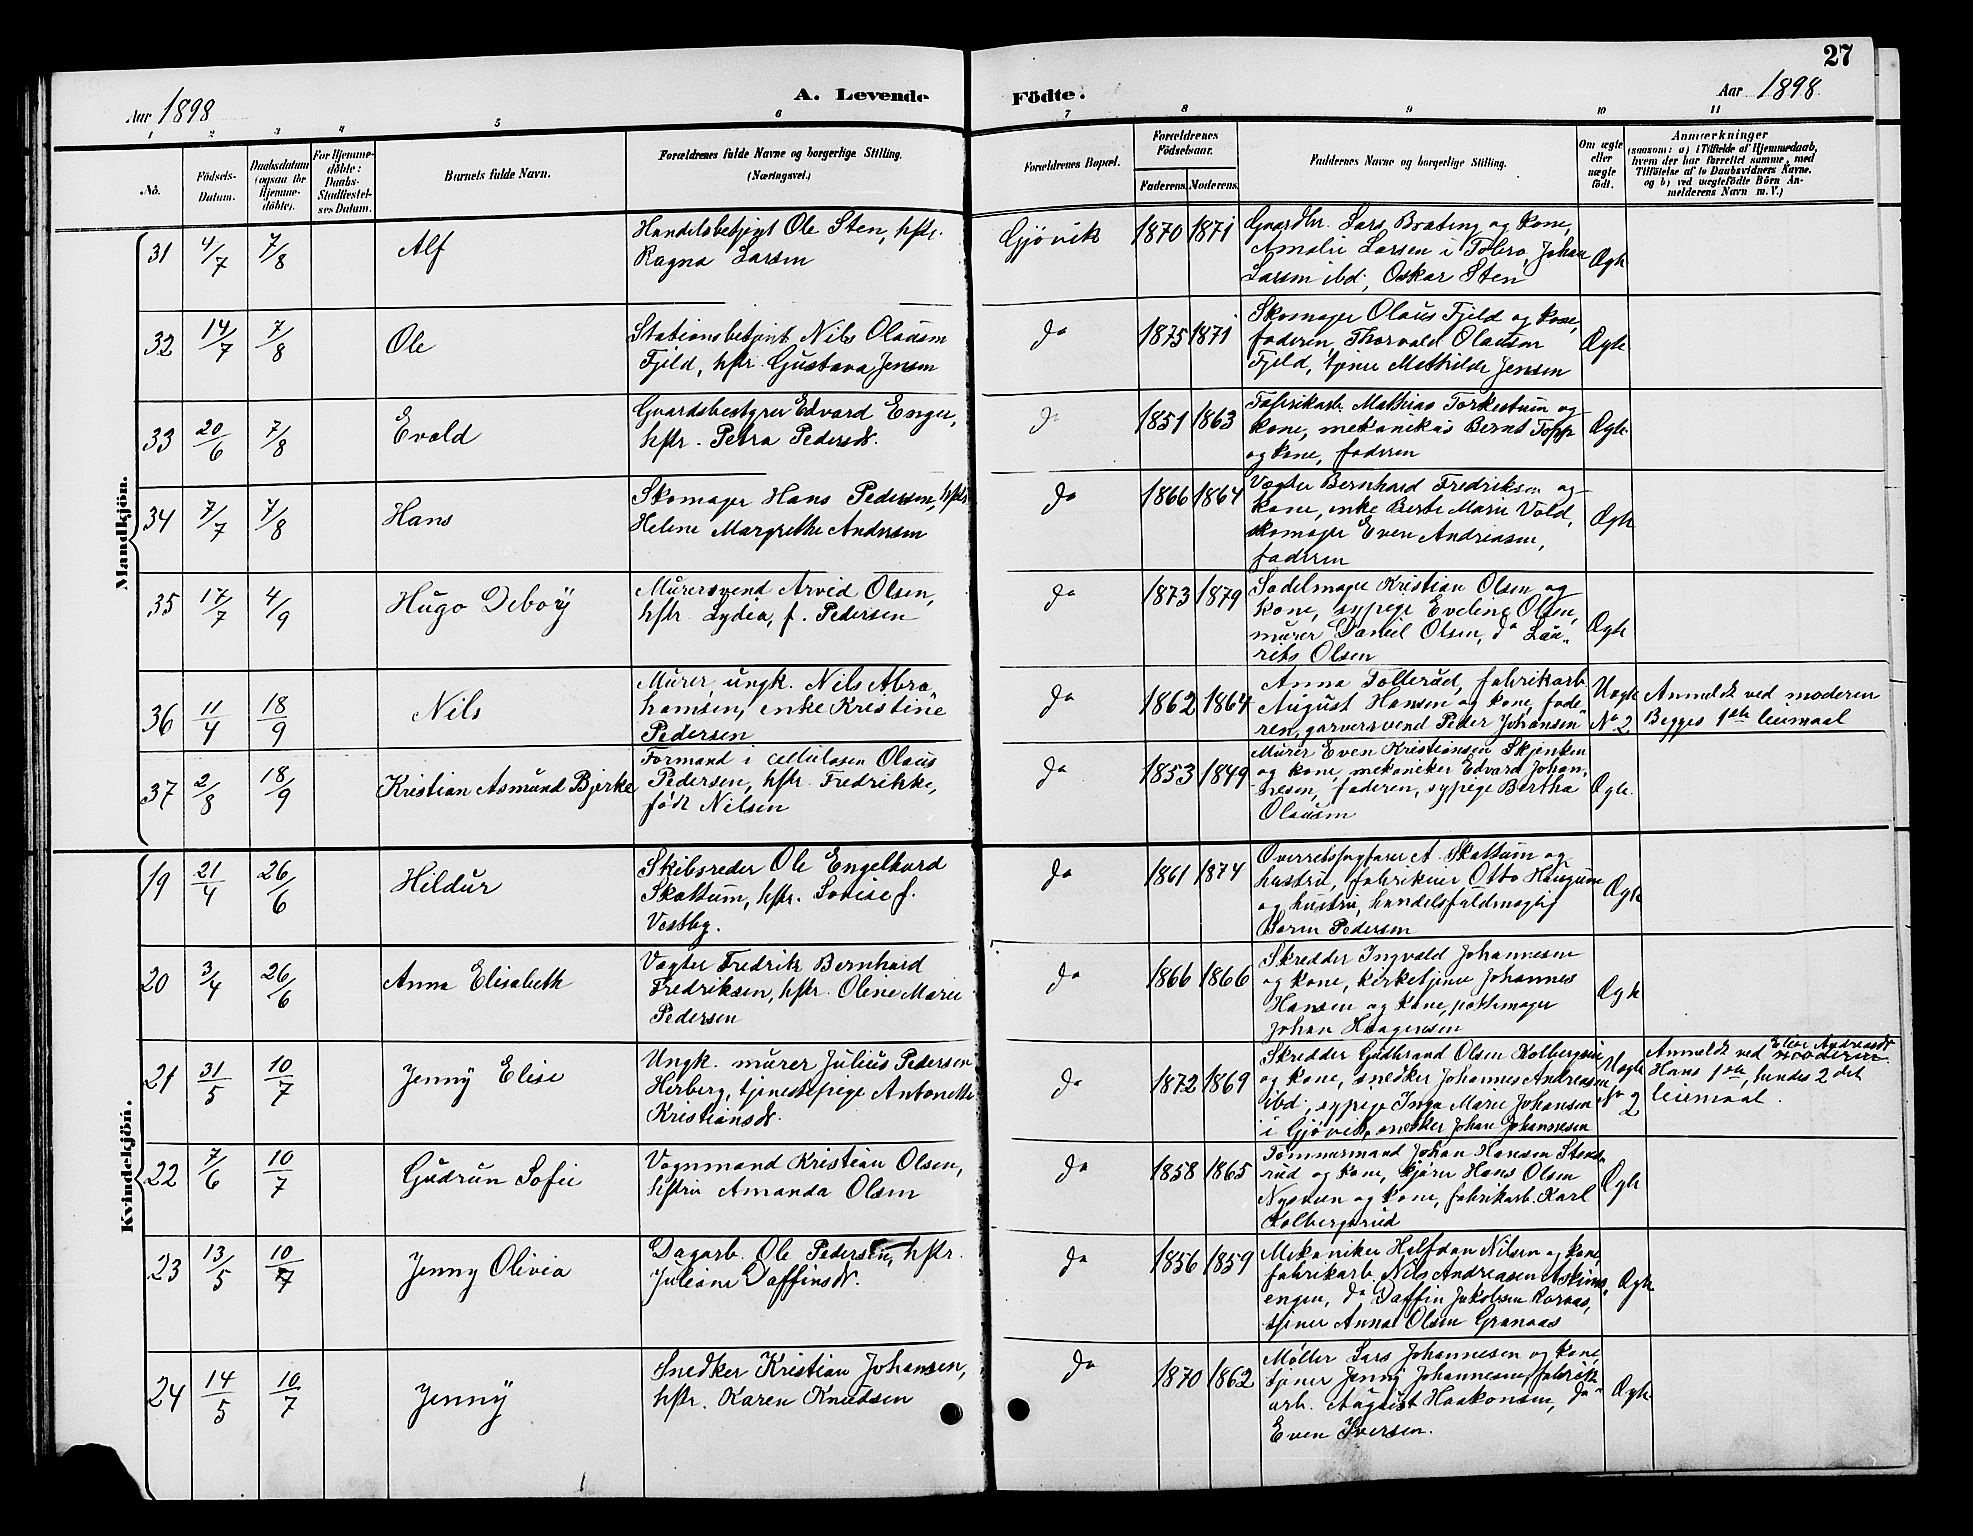 27
Aar 1898
A. Levende
Födte.
Aar 1898
1 2 3 4 5 6 7 8 9 10 11
No.
Födsels-
Datum.
Daabsdatum
(ogsaa for
Hjemme-
döbte).
For Hjemme-
döbte:
Daabs-
Stadfæstel-
ses Datum.
Barnets fulde Navn.
Forældrenes fulde Navne og borgerlige Stilling.
(Næringsvei.)
Forældrenes Bopæl.
Forældrenes
Födselsaar.
Faderens. Moderens.
Faddernes Navne og borgerlige Stilling.
Om ægte
eller
uægte
født.
Anmærkninger
(saasom: a) i Tilfælde af Hjemmedaab,
hvem der har forrettet samme, med
Tilföielse af to Daabsvidners Navne,
og b) ved uægtefödte Börn An-
melderens Navn m. V.)
Mandkjön.
31 4/7 7/8 Alf
Handelsbetjent Ole Sten, hstr.
Ragna Larsen
Gjøvik 1870 1871
Gaardbr. Lars Braaten og kone,
Amalie Larsen i Tobro, Johan
Larsen ibd, Oskar Sten
Ægte
32 14/7 7/8 Ole
Stationsbetjent Nils Olausen
Fjeld, hstr. Gustava Jensen
do 1875 1871
Skomager Olaus Fjeld og kone,
faderen, Thorvald Olausen
Fjeld, tjener Mathilde Jensen
Ægte
33 20/6 7/8 Evald
Gaardsbestyrer Edvard Enger,
hstr. Petra Pedersdt.
do 1851 1863
Fabrikarb. Mathias Torkestuen og
kone, mekanikus Bernt Topp
og kone, faderen
Ægte
34 7/7 7/8 Hans
Skomager Hans Pedersen, hstr
Helene Margrethe Andersen
do 1866 1864
Vægter Bernhard Fredriksen og
kone, enke Berte Marie Vold,
skomager Even Andreasen,
faderen
Ægte
35 17/7 4/9 Hugo Deboÿ
Murersvend Arvid Olsen,
hstr. Lydia, f. Pedersen
do 1873 1879
Sadelmager Kristian Olsen og
kone, sypige Eveline Olsen,
murer Daniel Olsen, do Lau-
rits Olsen
Ægte
36 11/4 18/9 Nils
Murer, ungk. Nils Abra-
hamsen, enke Kristine
Pedersen
do 1862 1864
Anna Tollerud, fabrikarb
August Hansen og kone, fade-
ren, garversvend Peder Johansen
Uægte
No 2
Anmeldt ved moderen
Begges 1ste leiemaal
37 2/8 18/9 Kristian Asmund Bjerke
Formand i cellulosen Olaus
Pedersen, hstr. Fredrikke,
født Nilsen
do 1853 1849
Murer Even Kristiansen Skjenken
og kone, mekaniker Edvard Johan-
nesen, faderen, sypige Bertha
Olausen
Ægte.
Kvindekjön.
19 21/4 26/6 Hildur
Skibsreder Ole Engelhard
Skattum, hstr. Lovise f.
Vestby.
do 1861 1874
Overretssagfører A. Skattum og
hustru, fabrikeier Otto Haugum
og hustru, handelsfuldmægtig
Pedersen
Ægte
20 3/4 26/6 Anna Elisabeth
Vægter Fredrik Bernhard
Fredriksen, hstr. Olene Marie
Pedersen
do 1866 1866
Skredder Ingvald Johannesen
og kone, kirketjener Johannes
Hansen og kone, pottemager
Johan Haagensen
Ægte
21 31/5 10/7 Jennÿ Elise
Ungk. murer Julius Pedersen
Herberg, tjenestepige Antonette
Kristiansdt.
do 1872 1869
Skredder Gudbrand Olsen Kolbergsrud
og kone, snedker Johannes Andreasen
ibd, sypige Inga Marie Johansen
i Gjøvik, snedker Johan Johannesen
Uægte
No 2
Anmeldt ved Elise Andreasdt
moderen
Hans 1ste, hendes 2det
leiemaal.
22 7/6 10/7 Gudrun Sofie
Vognmand Kristian Olsen,
hstru Amanda Olsen
do 1858 1865
Tømmermand Johan Hansen Stens-
rud og kone, kjører Hans Olsen
Nystuen og kone, fabrikarb. Karl
Kolbergsrud
Ægte
23 13/5 10/7 Jenny Olivia
Dagarb. Ole Pedersen, hstr.
Juliane Daffinsdt.
do 1856 1859
Mekaniker Halfdan Nilsen og kone,
fabrikarb. Nils Andreasen Askims-
engen, do Daffin Jakobsen
tjener Anna Olsen Granaas
Ægte
24 14/5 10/7 Jennÿ
Snedker Kristian Johansen,
hstr. Karen Knudsen
do 1870 1862
Møller Lars Johannesen og kone
tjener Jenny Johannesen, fabrik-
arb. August Haakonsen, do
Even Iversen.
Ægte